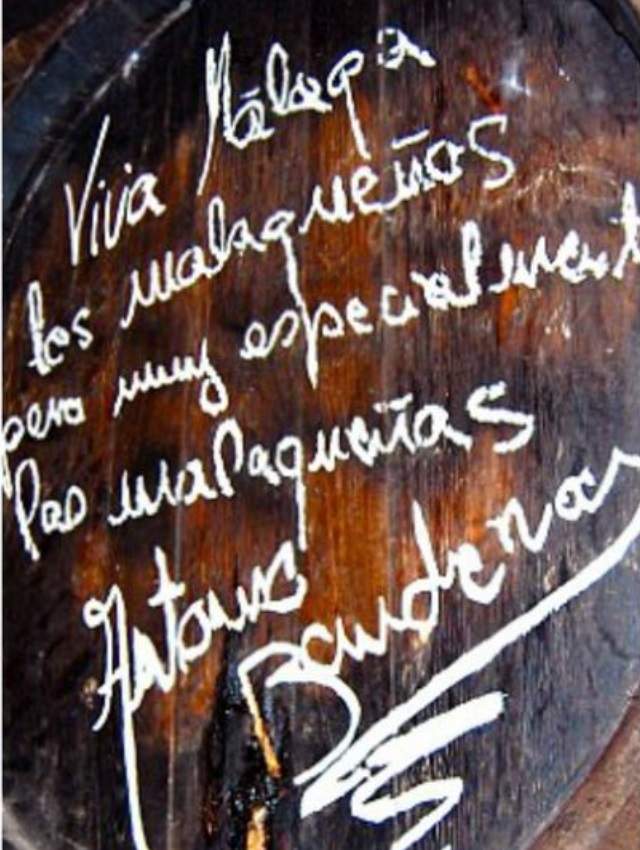 Viva Málaga
los malagueños
pero muy especialment
las malagueñas
Antonio
Banderas